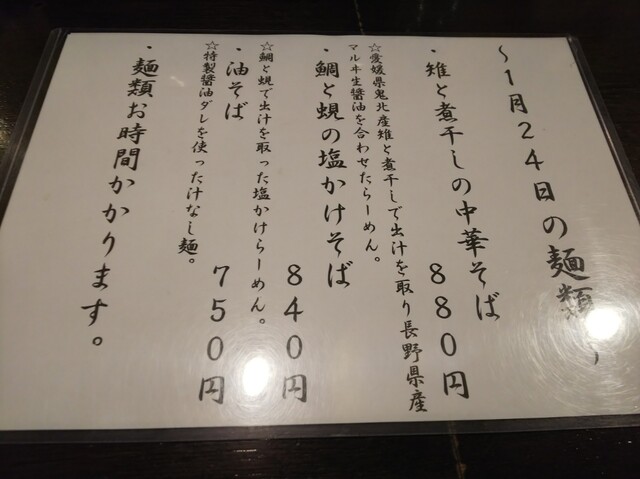 ～1月24日の麺類～
・雉と煮干しの中華そば
880円
☆愛媛県鬼北産雉と煮干しで出汁を取り長野県産
マルヰ生醤油を合わせたらーめん。
・鯛と蜆の塩かけそば
840円
☆鯛と蜆で出汁を取った塩かけらーめん。
・油そば
750円
☆特製醤油ダレを使った汁なし麺。
・麺類お時間かかります。